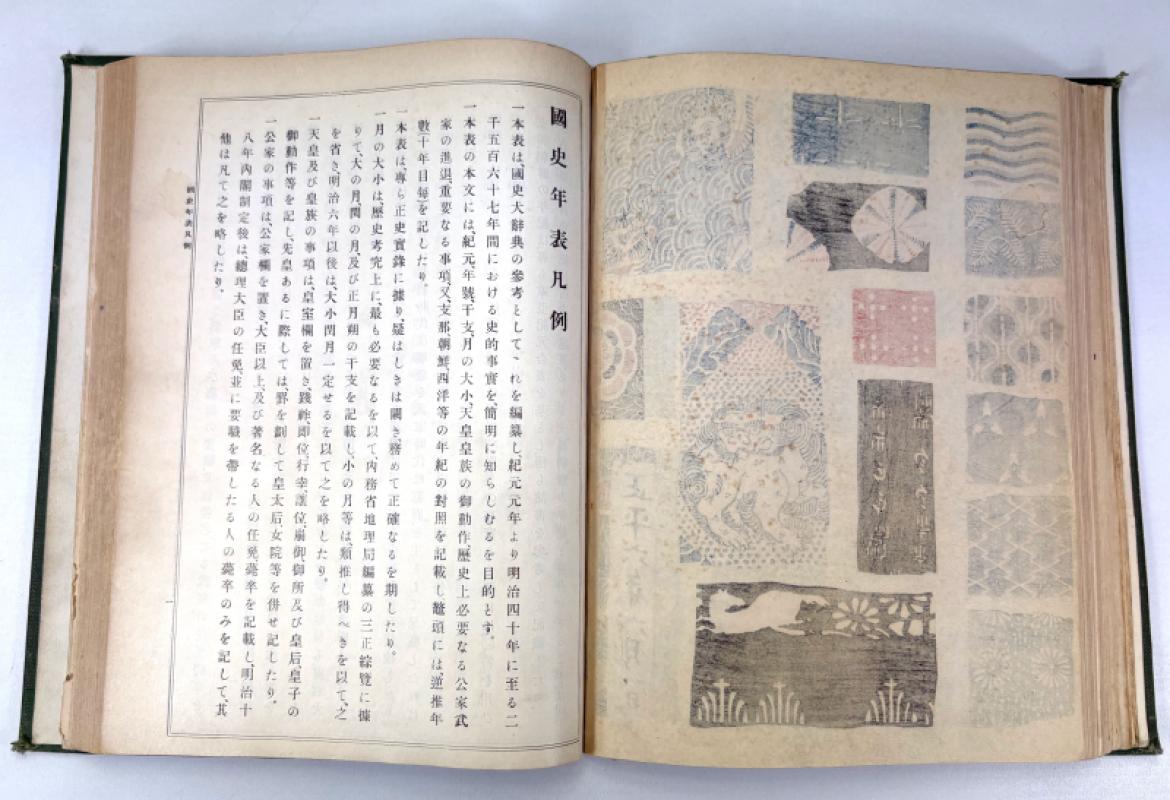 國史年表凡例
一本表は、國史大辭典の參考として、これを編纂し、紀元元年より明治四十年に至る二
千五百六十七年間における史的事實を、簡明に知らしむるを目的とす。
一本表の本文には、紀元、年號、干支、月の大小、天皇皇族の御動作、歷史上必要なる公家武
家の進退、重要なる事項、又、支那、朝鮮、西洋等の年紀の對照を記載し、鼇頭には、逆推年
數(十年目每)を記したり。
一本表は、專ら正史實錄に據り、疑はしきは闕き、務めて正確なるを期したり。
一月の大小は、歷史考究上に、最も必要なるを以て、內務省地理局編纂の三正綜覽に據
りて、大の月、閏の月、及び正月朔の干支を記載し、小の月等は、類推し得べきを以て、之
を省き、明治六年以後は、大小閏月一定せるを以て之を略したり。
一天皇及び皇族の事項は、皇室欄を置き、踐祚、卽位、行幸、讓位、崩御、御所及び皇后、皇子の
御動作等を記し、先皇あるに際しては、罫を劃して皇太后、女院等を併せ記したり。
一公家の事項は、公家欄を置き、大臣以上、及び著名なる人の任免薨卒を記載し、明治十
八年內閣制定後は、總理大臣の任免、並に要職を帶したる人の薨卒のみを記して、其
他は凡て之を略したり。
國史年表凡例
一